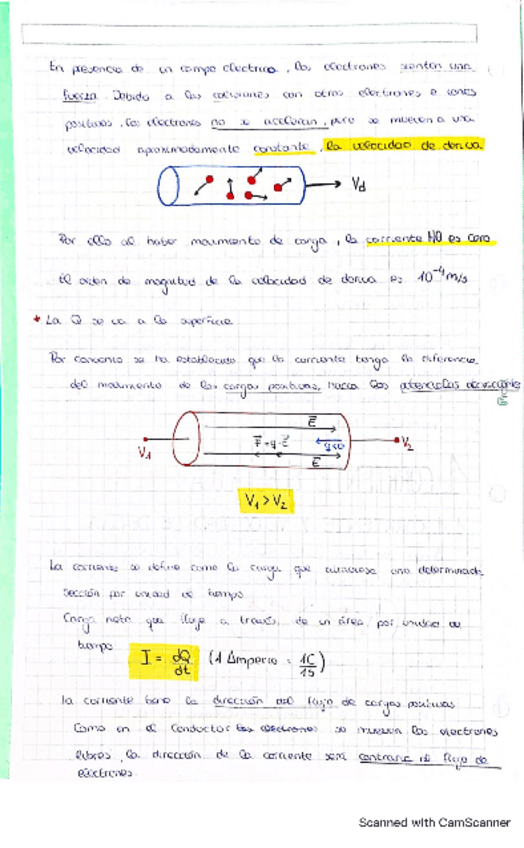 En presencia de un campo eléctrico, los electrones sienten una
fuerza. Debido a las colisiones con otros electrones e iones
positivos, los electrones no se aceleran, pero se mueven a una
velocidad aproximadamente constante, la velocidad de deriva.
Vd
Por ello al haber movimiento de carga, la corriente NO es cero
El orden de magnitud de la velocidad de deriva es 10⁻⁴ m/s
* La Q se va a la superficie.
Por convenio se ha establecido que la corriente tenga la diferencia
del movimiento de las cargas positivas, hacia los potenciales decrecientes
E
V1
E
F = q·E
q<0
E
V2
V1 > V2
La corriente se define como la carga que atraviesa una determinada
sección por unidad de tiempo
Carga neta que fluye a través de un área por unidad de
tiempo
I = dQ/dt (1 Amperio = 1C/1s)
la corriente tiene la dirección del flujo de cargas positivas
Como en el conductor los electrones se mueven los electrones
libres, la dirección de la corriente será contraria al flujo de
electrones.
Scanned with CamScanner